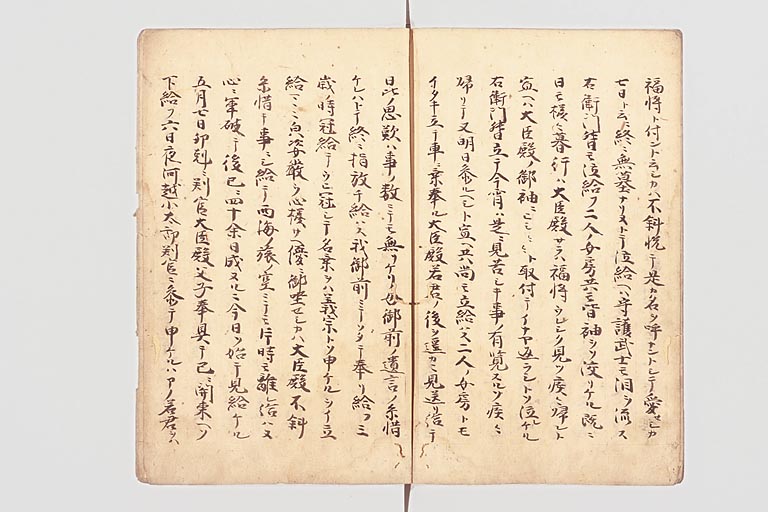 福将ト付ントテシカハ不斜悦テ是カ名ヲ呼ナントシテノ愛セシカ
七日ト云ニ終ニ無墓ナリヌトテ泣給ヘハ守護武士モ泪ヲ流ス
右衛門督モ泣給フ二人ノ女房共モ皆袖ヲソ絞リケル既ニ
日モ様々暮行ハ大臣殿サラハ福将シハシク見ツ疾々帰レト
宣ヘハ大臣殿ノ御袖ニヒシト取付テイナヤ返ラシトソ泣ケル
右衛門督立テ今宵ハ是ニ見苦シキ事ノ有覧スルソ疾々
帰リテ又明日参ルヘシト宣ヘ共尚モ立給ハス二人ノ女房トモ
イタキ立テ車ニ乗奉ル大臣殿若君ノ後ヲ遥カニ見送リ給テ
日比ノ思歎ハ事ノ数ニテモ無リケリ母御前ノ遺言ノ糸惜
ケレハトテ終ニ指放チ給ハス我御前ニテソタテ奉リ給フ三
歳ノ時冠給テウヰ冠シテ名乗ヲハ義宗トソ申ケルシイ立
給マヽニ貞姿厳ク心様サヘ優ニ御坐セシカハ大臣殿不斜
糸惜キ事ニシ給テ西海ノ旅ノ空ニテモ片時モ離レ給ハス
心ニ軍破テ後已ニ四十余日成ヌルニ今日ソ始テ見給ケル
五月七日卯剋ニ判官大臣殿父子奉具テ已ニ関東ヘソ
下給フ六日夜河越小太郎判官ニ参テ申ケルハアノ若君ヲハ